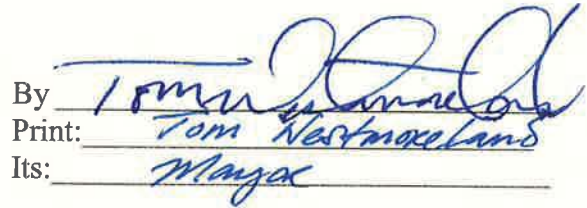 By Tom Westmoreland
Print: Tom Westmoreland
Its: Mayor